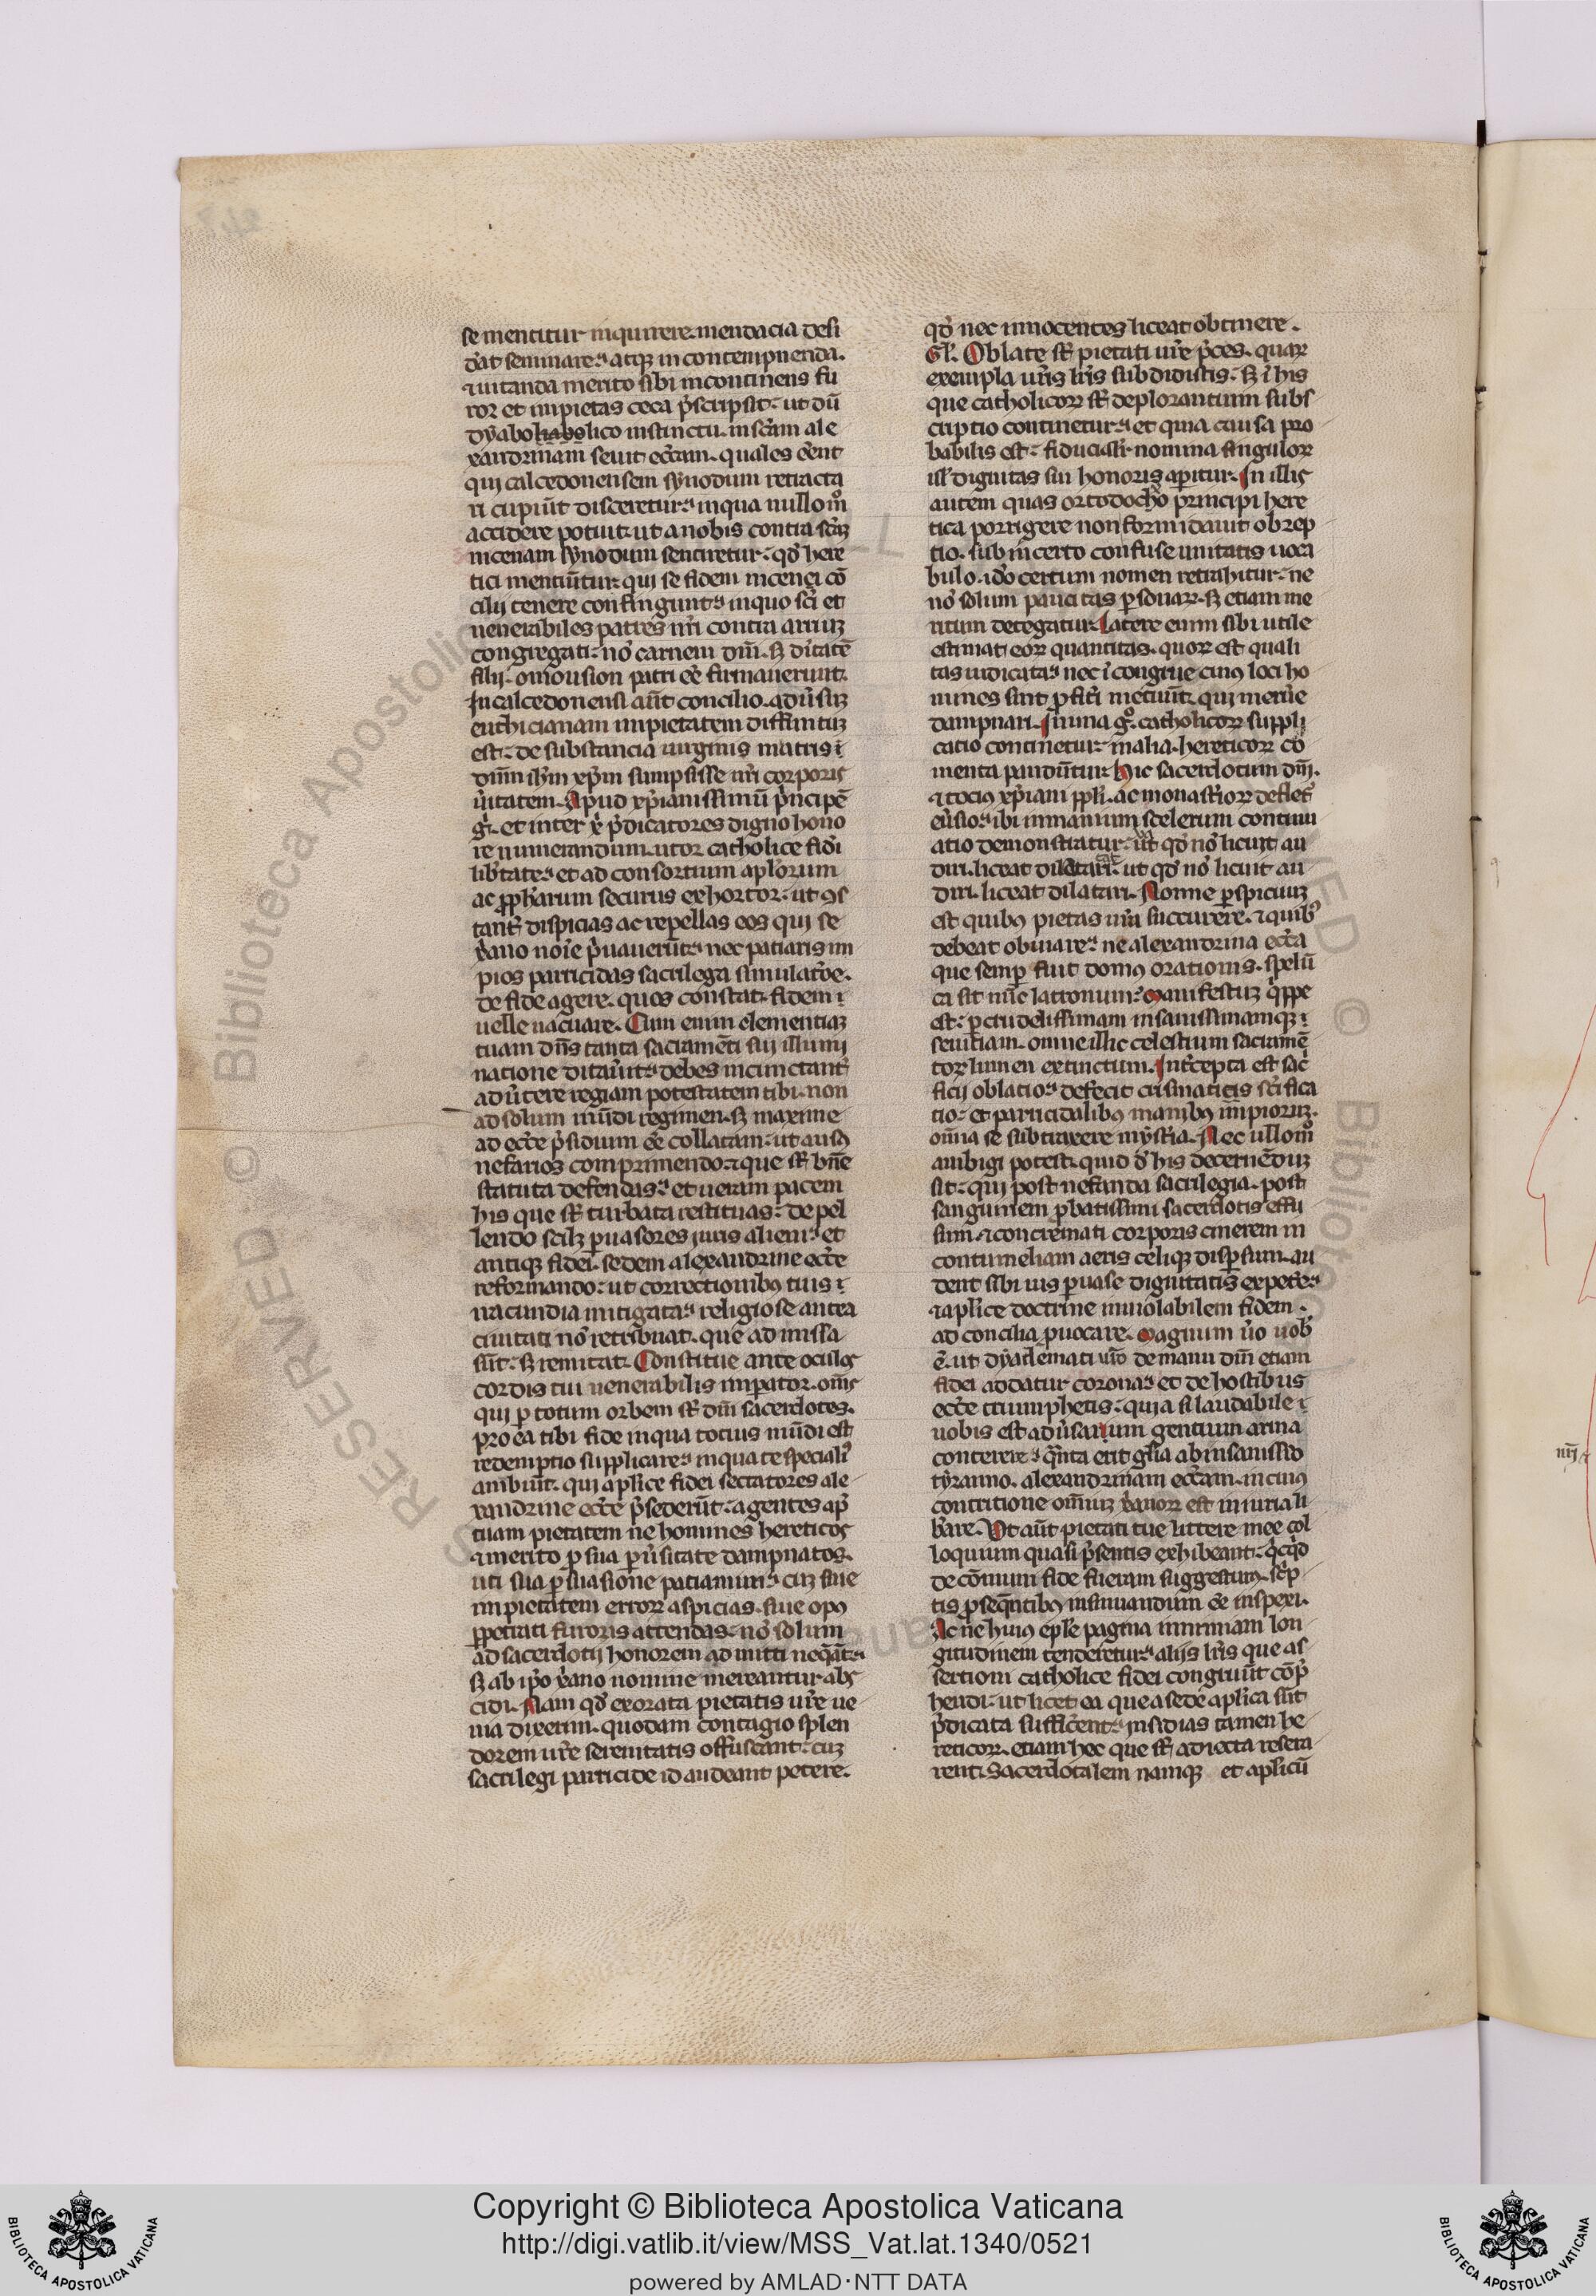 se mentitur inquirere. mendacia desi
dat seminare. atqꝫ in contempnenda.
⁊ uitanda merito sibi incontinens fu
ror et impietas ceca p̄scripsit. ut dū
dyabolico instinctu. in sc̄am ale
xandrinam seuit eccl̄am. quales eēnt
qui calcedonensem synodum retracta
ri cupiūt disceretur. in qua nullom̊
accidere potuit. ut a nobis contra sc̄aꝫ
nicenam synodum sentiretur. qd̓ here
tici mentiūtur. qui se fidem niceni cō
cilij tenere confingunt. in quo sc̄i et
uenerabiles patres nr̄i contra arriuꝫ
congregati. no᷒ carnem dn̄i. sꝫ ditatē
filij. omousion patri eē firmauerunt.
In calcedonensi aūt concilio. aduersuꝫ
euthicianam impietatem diffinituꝫ
est. de substancia uirginis matris
dn̄m ihm̄ xp̄m sumpsisse nr̄i corporis
ūitatem. Apud xp̄ianissimū p̄ncipē
g̊. et inter xp̄i p̄dicatores digno hono
re numerandum. utor catholice fidei
lib̄tate. et ad consortium apl̄orum
ac ꝓph̄arum securus exhortor. ut ꝯs
tant̄ dispicias ac repellas eos qui se
xp̄iano noīe p̄uauerūt. nec patiaris im
pios parricidas sacrilega simulatōe.
de fide agere. quos constat fidem
uelle uacuare. Cum enim clementiaꝫ
tuam dn̄s tanta sacramēti sui illumi
natione ditauit. debes incunctant̄
aduertere regiam potestatem tibi. non
ad solum mūdi regimen. sꝫ maxime
ad eccl̄e p̄sidium eē collatam. ut ausꝯ
nefarios comprimendo. ⁊ que st̄ bn̄e
statuta defendas. et ueram pacem
his que st̄ turbata restituas. depel
lendo scilꝫ ꝑuasores iuris alieni. et
antiqꝫ fidei. sedem alexandrine eccl̄e
reformando. ut correctionibꝯ tuis
iracundia mitigata. religiose antea
ciuitati no᷒ retribuat. que admissa
sūt. sꝫ remittat. Constitue ante oculos
cordis tui uenerabilis imp̄ator. om̄s
qui ꝑ totum orbem st̄ dn̄i sacerdotes.
pro ea tibi fide in qua totius mūdi est
redemptio supplicare. in qua te speciali᷒
ambiūt. qui aplice fidei sectatores ale
xandrine eccl̄e p̄sederūt. agentes ap̄
tuam pietatem ne homines hereticos
⁊ merito ꝓ sua ꝑuersitate dampnatos.
uti sua ꝑsuasione patiamini. cuꝫ siue
impietatem errorꝝ aspicias. siue opꝯ
ꝑpetrati furoris attendas. no᷒ solum
ad sacerdotij honorem admitti neq̄ant.
sꝫ ab ip̄o xp̄iano nomine mereantur abs
cidi. Nam qd̓ exorata pietatis ur̄e ue
nia dixerim. quodam contagio splen
dorem ur̄e serenitatis offuscant. cuꝫ
sacrilegi parricide id audeant petere.
qd̓ nec innocentes liceat obtinere.
Oblate st̄ pietati ur̄e p̄ces. quaꝝ
exempla ur̄is lr̄is subdidistis. sꝫ ī his
que catholicorꝝ st̄ deplorantium subs
criptio continetur. et quia causa pro
babilis est. fiducialr̄ nomina singulorꝝ
⁊ dignitas sui honoris aperitur. In illis
autem quas ortodocho principi here
tica porrigere non formidauit obrep
tio. sub incerto confuse unitatis uoca
bulo. ido certum nomen retrahitur. ne
no᷒ solum paucitas ꝑsonarꝝ. sꝫ etiam me
ritum detegatur. Latere enim sibi utile
estimat eorꝝ quantitas. quorꝝ est quali
tas iudicata. nec īcongrue cuiꝯ loci ho
mines sint ꝓfiteri metuūt. qui meruere
dampnari. In una g̊. catholicorꝝ suppli
catio continetur in alia. hereticorꝝ cō
menta pandūtur. Hic sacerdotum dn̄i.
⁊ tociꝯ xp̄iani ppl̄i. ac monast̄iorꝝ deflet᷒
euersio. ibi inmanium scelerum continu
atio demonstratur. ut qd̓ no᷒ licuit au
diri. liceat dilatari. ut qd̓ no᷒ licuit au
diri. liceat dilatari. Nonne ꝑspicuuꝫ
est quibꝯ pietas ur̄a succurrere. ⁊ quibꝯ
debeat obuiare. ne alexandrina eccl̄a
que semꝑ fuit domꝯ orationis. spelū
ca sit nūc latronum. Manifestuꝫ q̄ppe
est. ꝑ crudelissimam insanissimamqꝫ
seuitiam. omne illic celestium sacramē
torꝝ lumen extinctum. Int̄cepta est sac̄
ficij oblatio. defecit crismaticis sc̄ifica
tio. et parricidalibꝯ manibꝯ impioruꝫ.
om̄ia se subtraxere myst̄ia. Nec ullom̊
ambigi potest. quid d̄ his decernēduꝫ
sit. qui post nefanda sacrilegia. post
sanguinem ꝓbatissimi sacerdotis effu
sum. ⁊ concremati corporis cinerem in
contumeliam aeris celiqꝫ disꝑsum. au
dent sibi uis ꝑuase dignitatis expetere.
⁊ aplice doctrine inuiolabilem fidem.
ad concilia ꝓuocare. Magnum ū̊o uob̄
ē. ut dyademati ur̄o de manu dn̄i etiam
fidei addatur corona. et de hostibus
eccl̄e triumphetis. quia si laudabile
uobis est aduersarium gentium arma
conterere. q̄nta erit gl̄ia ab insanissīo
tyranno. alexandrinam eccl̄am. in cuiꝯ
contritione om̄niuꝫ xp̄ianorꝝ est iniuria li
berare. Ut aūt pietati tue littere mee col
loquium quasi p̄sentis exhibeant. q̄cq̄d
de cōmuni fide fueram suggesturꝯ. sc̄p
tis ꝓseq̄ntibꝯ insinuandum eē inspexi.
Ac ne huiꝯ epl̄e pagina in nimiam lon
gitudinem tenderetur. alijs lr̄is que as
sertioni catholice fidei congruūt cōp̄
hendi. ut licet ea que a sede aplica sūt
p̄dicata sufficerent. insidias tamen he
reticorꝝ. etiam hec que st̄ adiecta resera
rent. Sacerdotalem namqꝫ et aplicū
Copyright © Biblioteca Apostolica Vaticana
http://digi.vatlib.it/view/MSS_Vat.lat.1340/0521
powered by AMLAD·NTT DATA